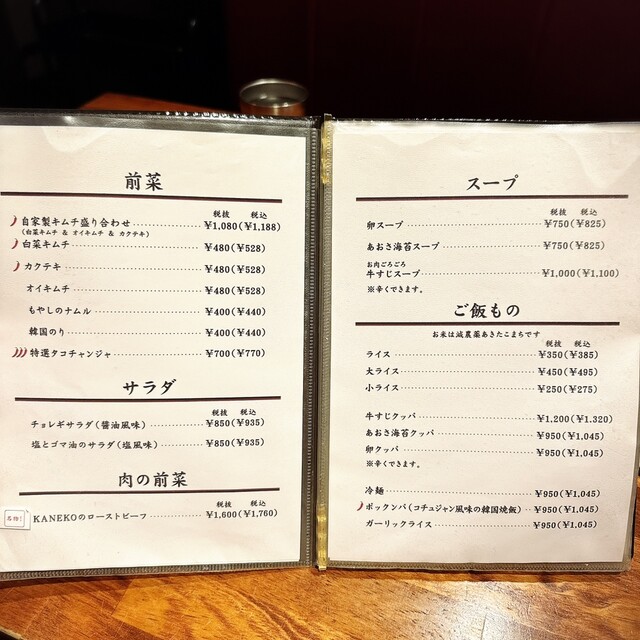 前菜
税抜 税込
自家製キムチ盛り合わせ ¥1,080(¥1,188)
(白菜キムチ & オイキムチ & カクテキ)
白菜キムチ ¥480(¥528)
カクテキ ¥480(¥528)
オイキムチ ¥480(¥528)
もやしのナムル ¥400(¥440)
韓国のり ¥400(¥440)
特選タコチャンジャ ¥700(¥770)
サラダ
税抜 税込
チョレギサラダ(醤油風味) ¥850(¥935)
塩とゴマ油のサラダ(塩風味) ¥850(¥935)
肉の前菜
税抜 税込
名物! KANEKOのローストビーフ ¥1,600(¥1,760)
スープ
税抜 税込
卵スープ ¥750(¥825)
あおさ海苔スープ ¥750(¥825)
お肉ごろごろ
牛すじスープ ¥1,000(¥1,100)
※辛くできます。
ご飯もの
お米は減農薬あきたこまちです
税抜 税込
ライス ¥350(¥385)
大ライス ¥450(¥495)
小ライス ¥250(¥275)
牛すじクッパ ¥1,200(¥1,320)
あおさ海苔クッパ ¥950(¥1,045)
卵クッパ ¥950(¥1,045)
※辛くできます。
冷麺 ¥950(¥1,045)
ポックンパ(コチュジャン風味の韓国焼飯) ¥950(¥1,045)
ガーリックライス ¥950(¥1,045)